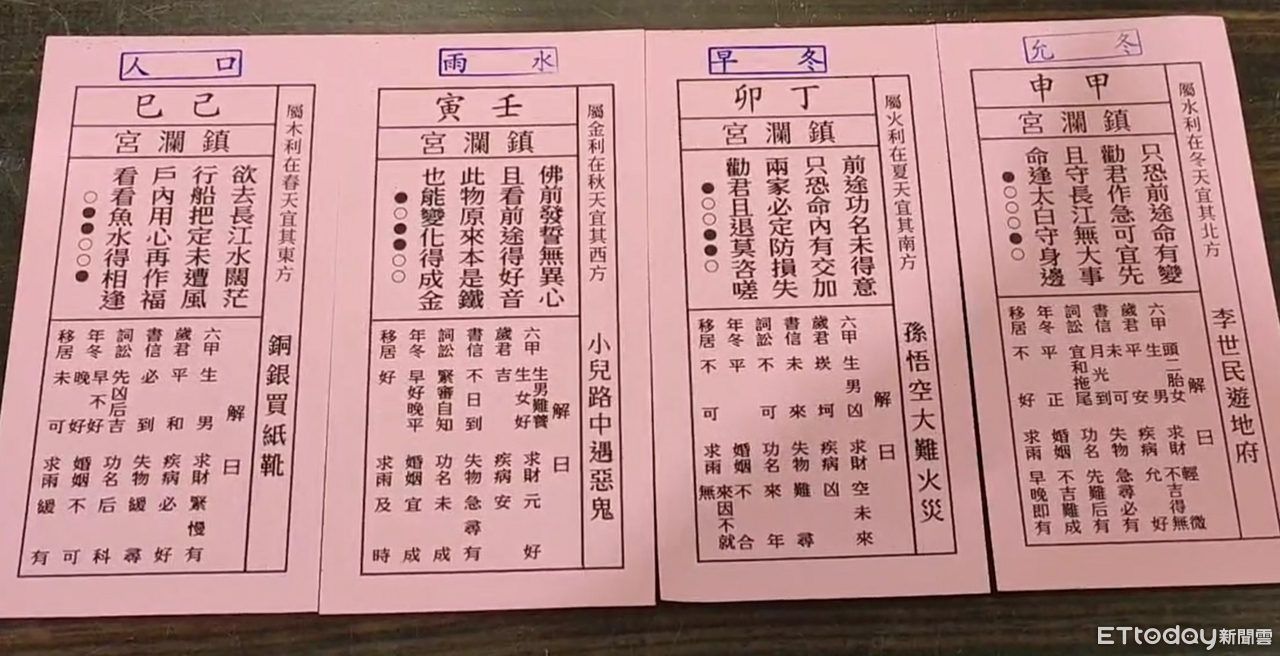 允冬
屬水利在冬天宜其北方
李世民遊地府
甲申
鎮瀾宮
只恐前途命有變
勸君作急可宜先
且守長江無大事
命逢太白守身邊
●○○○●○
解曰
六甲 頭二胎女生男
歲君平安
書信月光到未可
詞訟宜和拖尾
年冬平正
移居不好
求財輕微不吉得無
疾病允好
失物急尋必有
功名先難后有
婚姻不吉難成
求雨早晚即有
早冬
屬火利在夏天宜其南方
孫悟空大難火災
丁卯
鎮瀾宮
前途功名未得意
只恐命內有交加
兩家必定防損失
勸君且退莫咨嗟
●○○●●○
解曰
六甲生男凶
歲君崁坷
書信未來
詞訟不可
年冬平平
移居不可
求財空未來
疾病凶
失物難尋
功名來年
婚姻不合
求雨無來因不就
雨水
屬金利在秋天宜其西方
小兒路中遇惡鬼
壬寅
鎮瀾宮
佛前發誓無異心
且看前途得好音
此物原來本是鐵
也能變化得成金
●○●●○○
解曰
六甲生男難養生女好
歲君吉
書信不日到
詞訟緊審自知
年冬早好晚平
移居好
求財元好
疾病安
失物急尋有
功名未成
婚姻宜成
求雨及時
人口
屬木利在春天宜其東方
銅銀買紙靴
己巳
鎮瀾宮
欲去長江水闊茫
行船把定未遭風
戶內用心再作福
看看魚水得相逢
○●●○○●
解曰
六甲生男
歲君平和
書信必到
詞訟先凶后吉
年冬早不好晚好
移居未可
求財緊慢有
疾病必好
失物緩尋
功名后科
婚姻不可
求雨緩有
ETtoday新聞雲